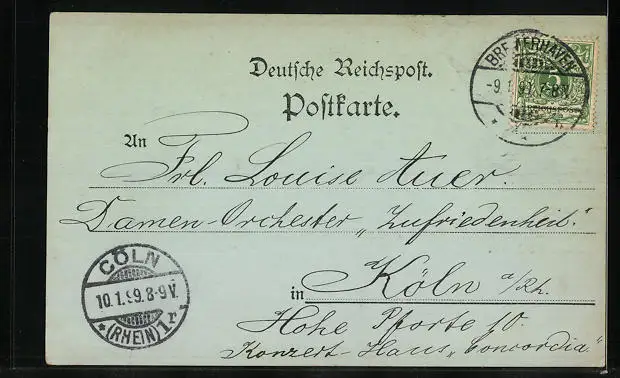 Deutsche Reichspost.
Postkarte.
BREMERHAVEN
-9.1.99.7-8N.
5
An
Frl. Louise Auer.
Damen-Orchester „Zufriedenheit."
CÖLN
10.1.99.8-9V.
*(RHEIN)1r
in Köln a/Rh.
Hohe Pforte 10.
Konzert-Haus „Concordia"